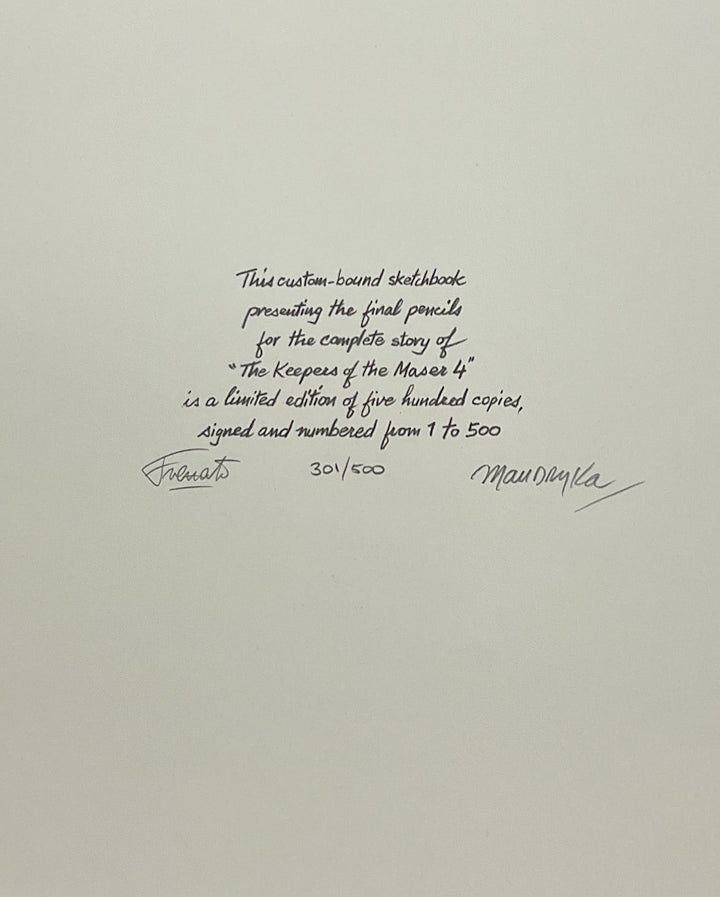 This custom-bound sketchbook
presenting the final pencils
for the complete story of
"The Keepers of the Maser 4"
is a limited edition of five hundred copies,
signed and numbered from 1 to 500
Frenato 301/500 MANDRYKA